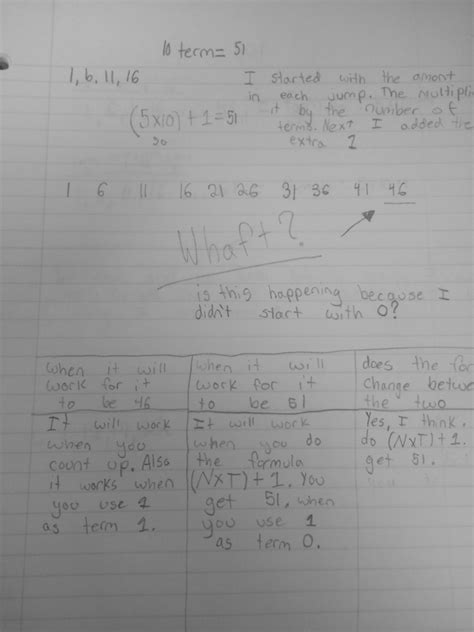 10 term= 51
1, 6. 11, 16
I started with the amont
in each jump. The multiplie
(5x10) + 1 = 51
it by the number of
50
terms. Next I added the
extra 1
1 6 11 16 21 26 31 36 41 46
Whaft?
is this happening because I
didn't start with 0?
when it will
work for it
to be 46
when it will
work for it
to be 51
does the for
change betwe
the two
It will work
when you
count up. Also
it works when
you use 1
as term 1.
It will work
when you do
the formula
(NxT) + 1. You
get 51, when
you use 1
as term 0.
Yes, I think.
do (NxT)+1.
get 51.